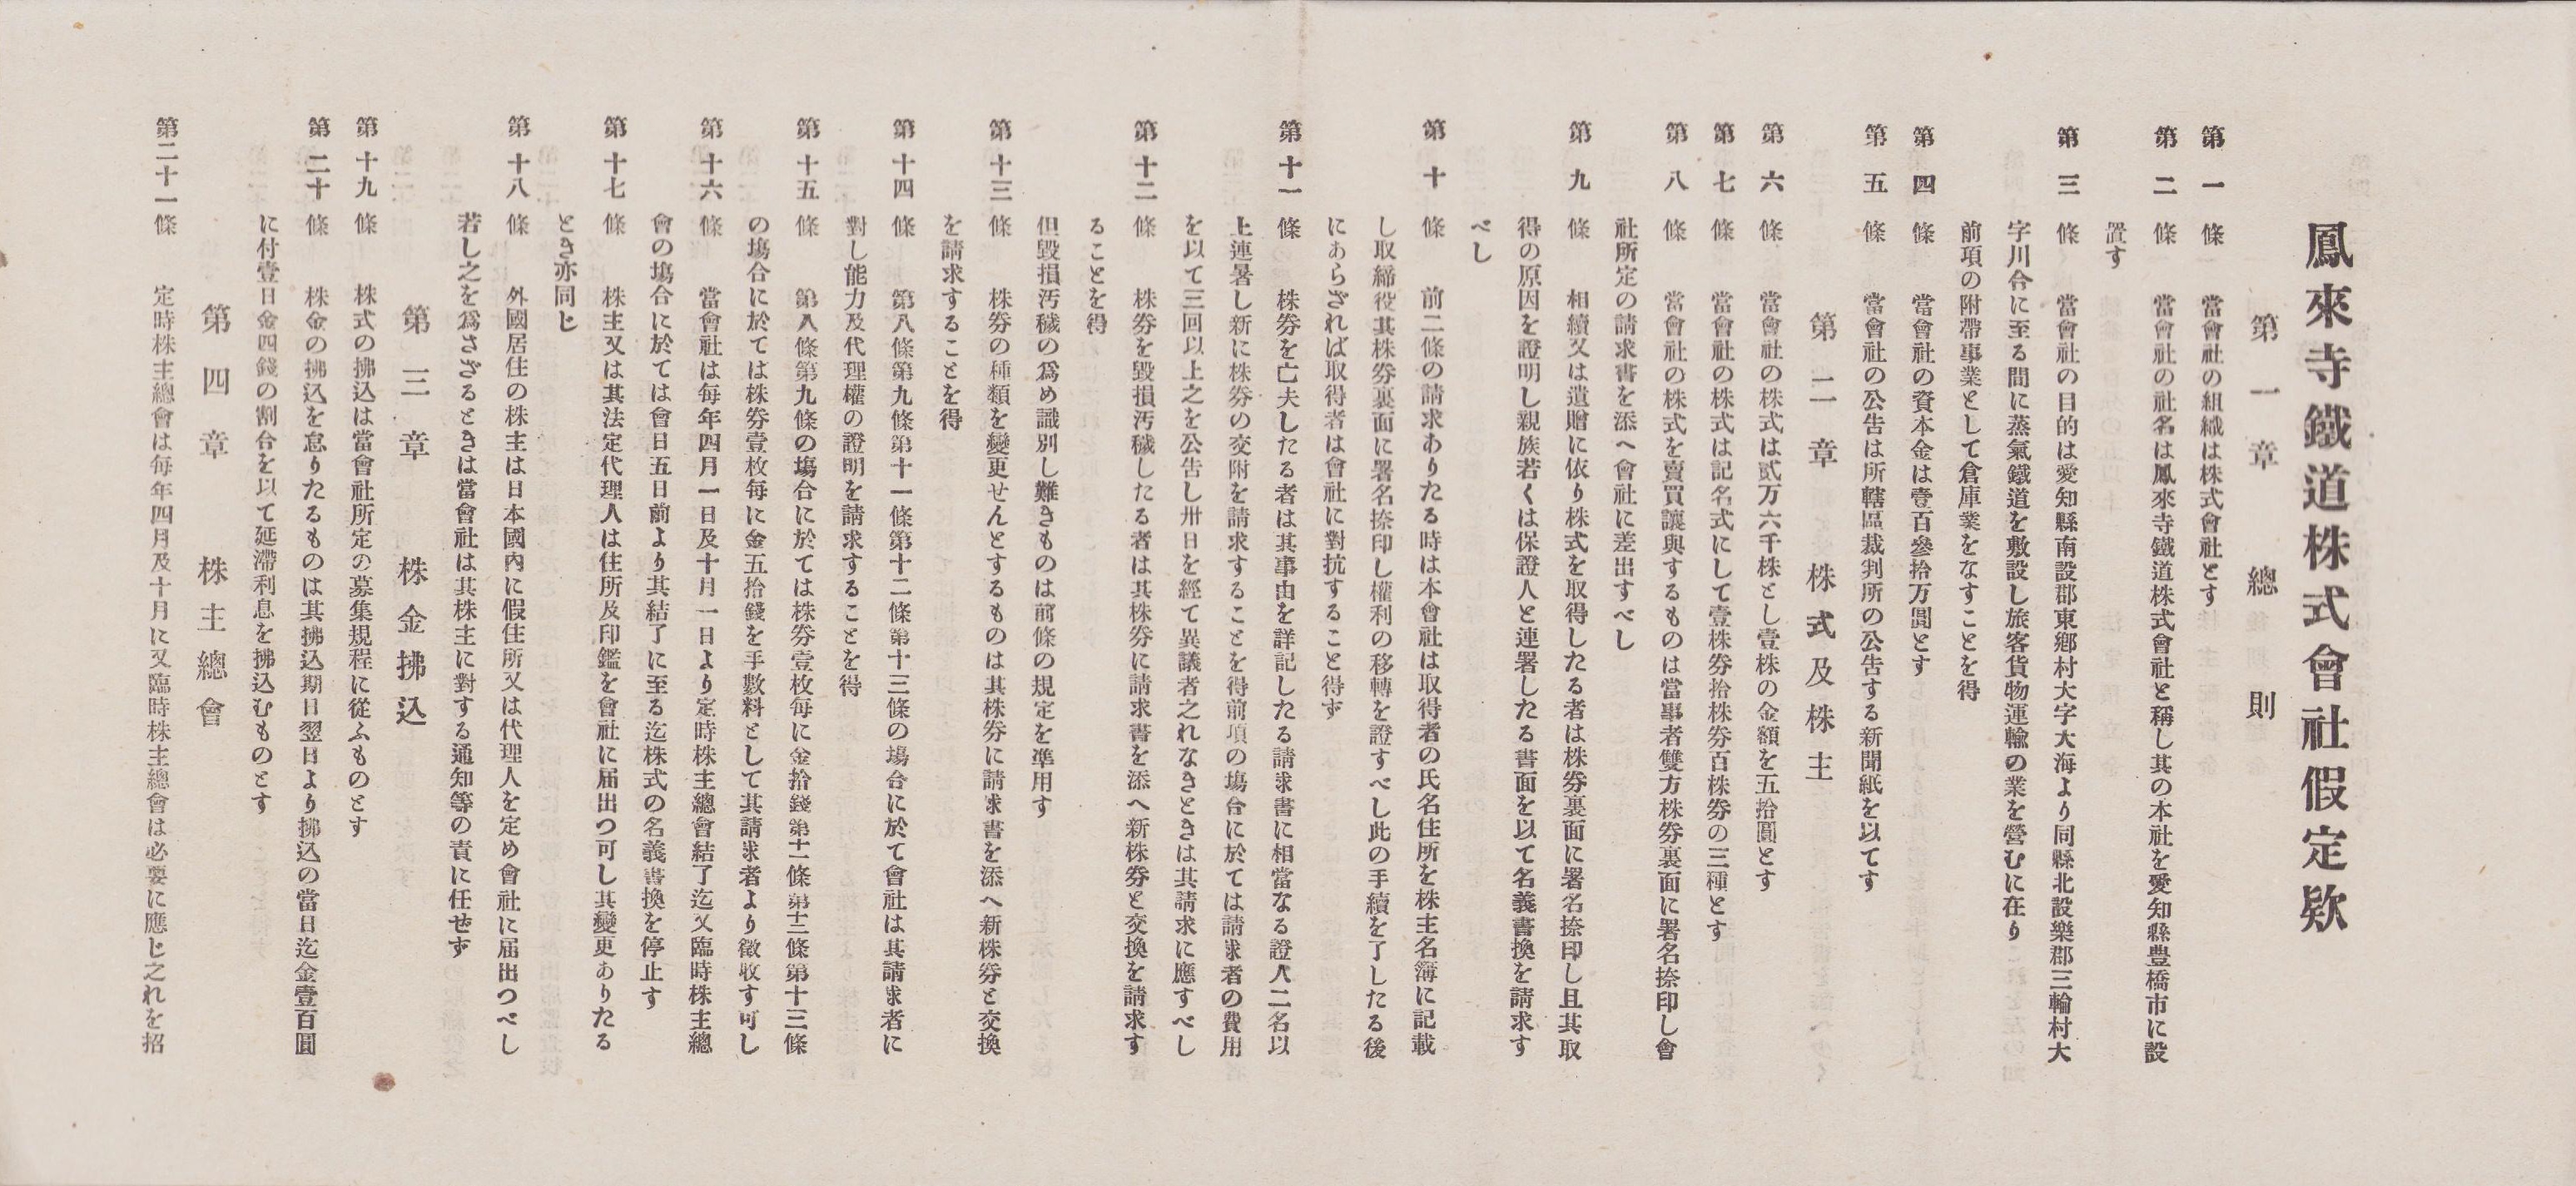 鳳來寺鐵道株式會社假定欵
第一章 總則
第一條 當會社の組織は株式會社とす
第二條 當會社の社名は鳳來寺鐵道株式會社と稱し其の本社を愛知縣豊橋市に設
置す
第三條 當會社の目的は愛知縣南設郡東郷村大字大海より同縣北設樂郡三輪村大
字川合に至る間に蒸氣鐵道を敷設し旅客貨物運輸の業を營むに在り
前項の附帶事業として倉庫業をなすことを得
第四條 當會社の資本金は壹百參拾万圓とす
第五條 當會社の公告は所轄區裁判所の公告する新聞紙を以てす
第二章 株式及株主
第六條 當會社の株式は貳万六千株とし壹株の金額を五拾圓とす
第七條 當會社の株式は記名式にして壹株券拾株券百株券の三種とす
第八條 當會社の株式を賣買讓與するものは當事者雙方株券裏面に署名捺印し會
社所定の請求書を添へ會社に差出すべし
第九條 相續又は遺贈に依り株式を取得したる者は株券裏面に署名捺印し且其取
得の原因を證明し親族若くは保證人と連署したる書面を以て名義書換を請求す
べし
第十條 前二條の請求ありたる時は本會社は取得者の氏名住所を株主名簿に記載
し取締役其株券裏面に署名捺印し權利の移轉を證すべし此の手續を了したる後
にあらざれば取得者は會社に對抗すること得ず
第十一條 株券を亡夫したる者は其事由を詳記したる請求書に相當なる證人二名以
上連暑し新に株券の交附を請求することを得前項の塲合に於ては請求者の費用
を以て三回以上之を公告し卅日を經て異議者之れなきときは其請求に應すべし
第十二條 株券を毀損汚穢したる者は其株券に請求書を添へ新株券と交換を請求す
ることを得
但毀損汚穢の爲め識別し難きものは前條の規定を準用す
第十三條 株券の種類を變更せんとするものは其株券に請求書を添へ新株券と交換
を請求することを得
第十四條 第八條第九條第十一條第十二條第十三條の場合に於て會社は其請求者に
對し能力及代理權の證明を請求することを得
第十五條 第八條第九條の塲合にに於ては株券壹枚毎に金拾錢第十一條第十二條第十三條
の塲合に於ては株券壹枚毎に金五拾錢を手數料として其請求者より徵收す可し
第十六條 當會社は毎年四月一日及十月一日より定時株主總會結了迄又臨時株主總
會の塲合に於ては會日五日前より其結了に至る迄株式の名義書換を停止す
第十七條 株主又は其法定代理人は住所及印鑑を會社に届出つ可し其變更ありたる
とき亦同じ
第十八條 外國居住の株主は日本國內に假住所又は代理人を定め會社に届出つべし
若し之を爲さざるときは當會社は其株主に對する通知等の責に任せず
第三章 株金拂込
第十九條 株式の拂込は當會社所定の募集規程に從ふものとす
第二十條 株金の拂込を怠りたるものは其拂込期日翌日より拂込の當日迄金壹百圓
に付壹日金四錢の割合を以て延滯利息を拂込むものとす
第四章 株主總會
第二十一條 定時株主總會は毎年四月及十月に又臨時株主總會は必要に應じ之れを招